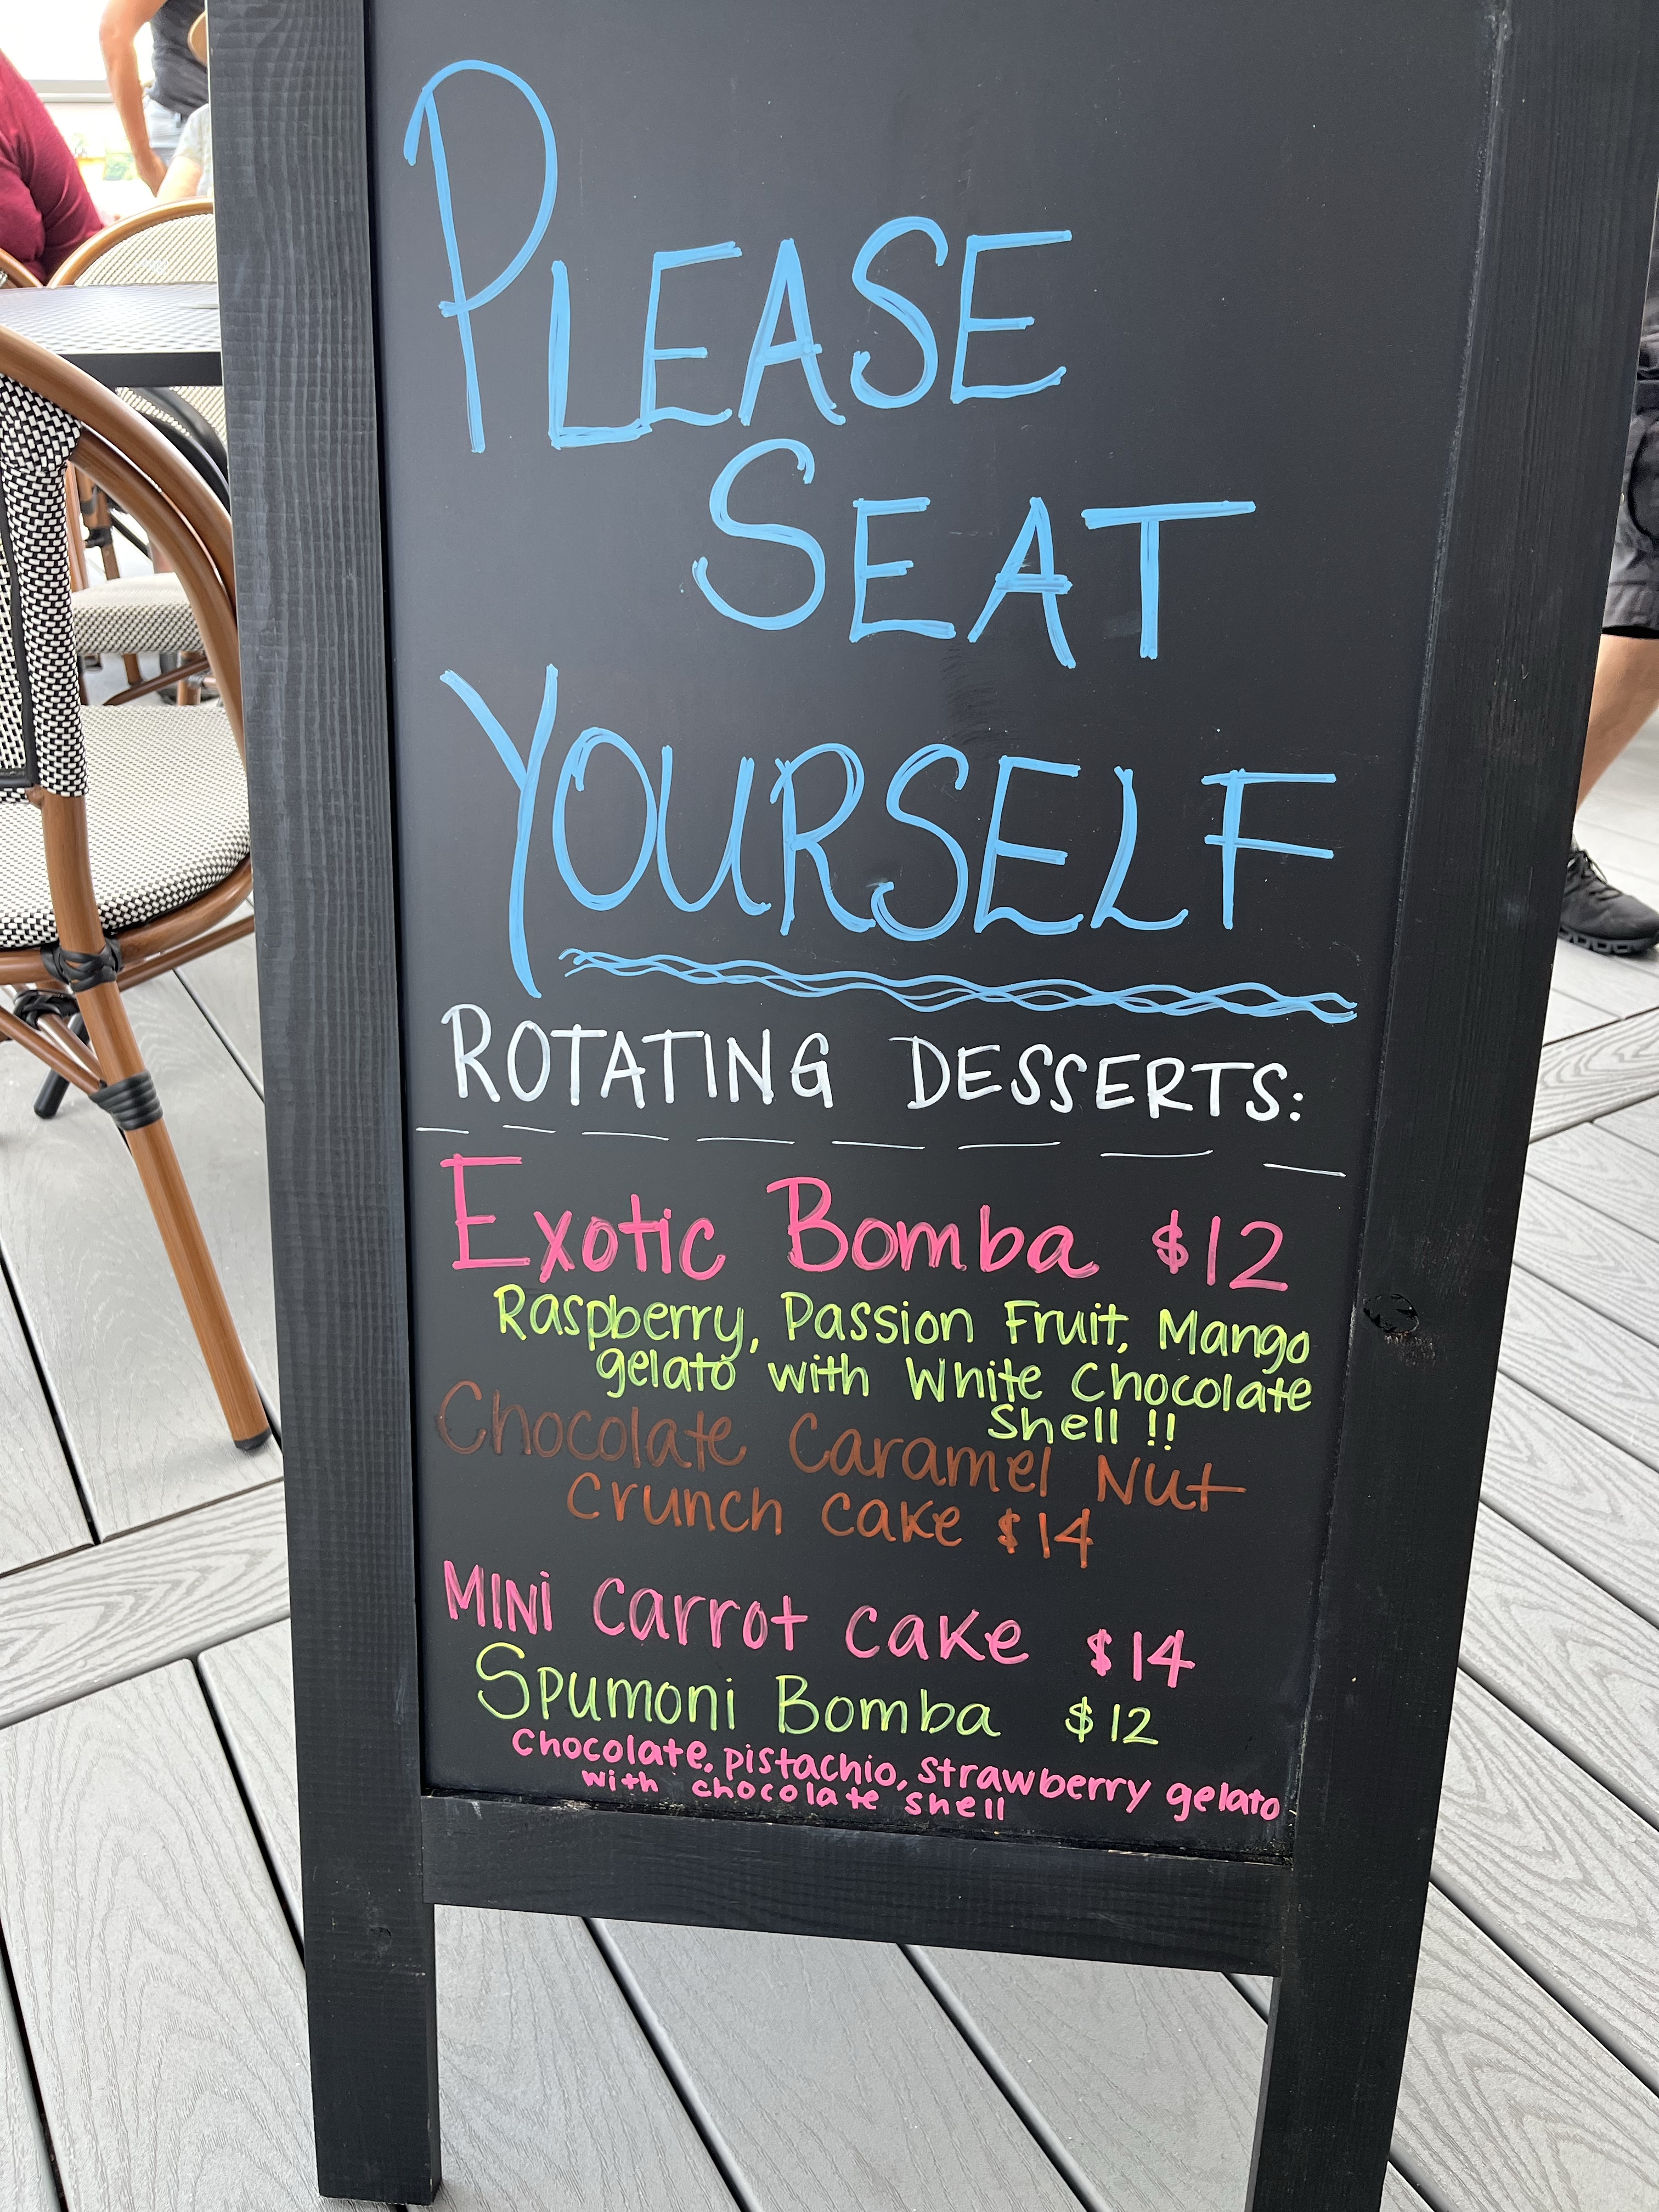 PLEASE
SEAT
YOURSELF
ROTATING DESSERTS:
Exotic Bomba $12
Raspberry, Passion Fruit, Mango
gelato with White Chocolate
Shell !!
Chocolate Caramel Nut
Crunch Cake $14
MINi Carrot Cake $14
Spumoni Bomba $12
Chocolate, pistachio, strawberry gelato
with chocolate shell